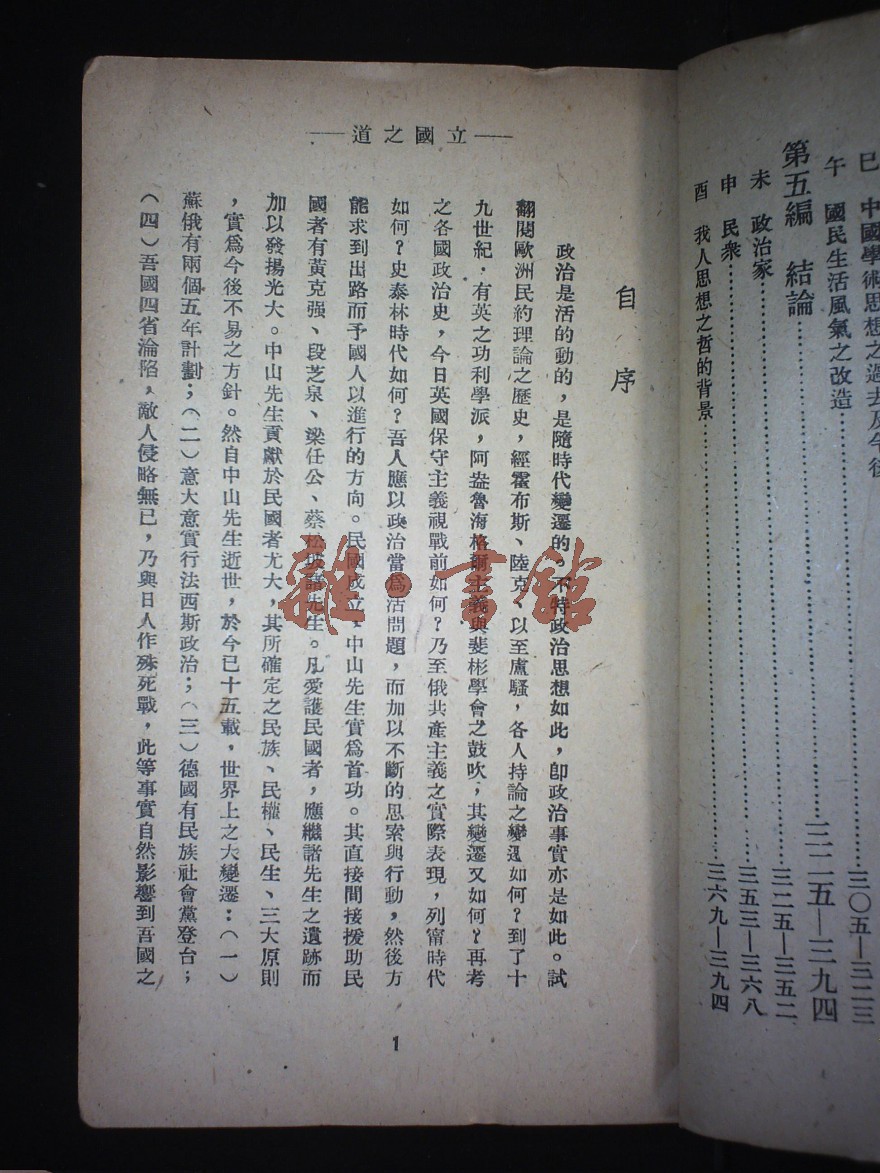 巳　中國學術思想之過去及今後
午　國民生活風氣之改造……三〇五—三二三
第五編　結論……三二五—三九四
未　政治家……三二五—三五二
申　民衆……三五三—三六八
酉　我人思想之哲的背景……三六九—三九四
立國之道
自序
政治是活的動的，是隨時代變遷的。不特政治思想如此，卽政治事實亦是如此。試
翻閱歐洲民約理論之歷史，經霍布斯、陸克、以至盧騷，各人持論之變遷如何？到了十
九世紀，有英之功利學派，阿盎魯海格爾主義與裴彬學會之鼓吹；其變遷又如何？再考
之各國政治史，今日英國保守主義視戰前如何？乃至俄共產主義之實際表現，列甯時代
如何？史泰林時代如何？吾人應以政治當爲活問題，而加以不斷的思索與行動，然後方
能求到出路而予國人以進行的方向。民國成立，中山先生實爲首功。其直接間接援助民
國者有黃克强、段芝泉、梁任公、蔡松坡諸先生。凡愛護民國者，應繼諸先生之遺跡而
加以發揚光大。中山先生貢獻於民國者尤大，其所確定之民族、民權、民生、三大原則
，實爲今後不易之方針。然自中山先生逝世，於今已十五載，世界上之大變遷：（一）
蘇俄有兩個五年計劃；（二）意大意實行法西斯政治；（三）德國有民族社會黨登台；
（四）吾國四省淪陷，敵人侵略無已，乃與日人作殊死戰，此等事實自然影響到吾國之
1
雜·書館